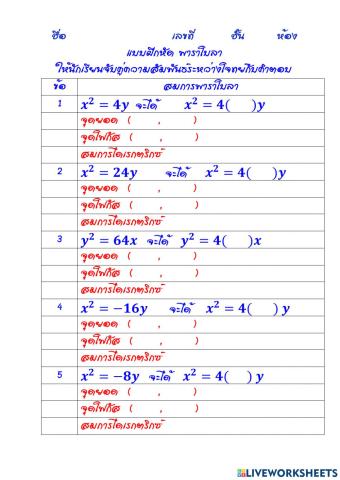 ชื่อ เลขที่ ชั้น ห้อง
แบบฝึกหัด พาราโบลา
ให้นักเรียนจับคู่ความสัมพันธ์ระหว่างโจทย์กับคำตอบ
ข้อ สมการพาราโบลา
1 x² = 4y จะได้ x² = 4( )y
จุดยอด ( , )
จุดโฟกัส ( , )
สมการไดเรกตริกซ์
2 x² = 24y จะได้ x² = 4( )y
จุดยอด ( , )
จุดโฟกัส ( , )
สมการไดเรกตริกซ์
3 y² = 64x จะได้ y² = 4( )x
จุดยอด ( , )
จุดโฟกัส ( , )
สมการไดเรกตริกซ์
4 x² = −16y จะได้ x² = 4( ) y
จุดยอด ( , )
จุดโฟกัส ( , )
สมการไดเรกตริกซ์
5 x² = −8y จะได้ x² = 4( ) y
จุดยอด ( , )
จุดโฟกัส ( , )
สมการไดเรกตริกซ์
LIVEWORKSHEETS